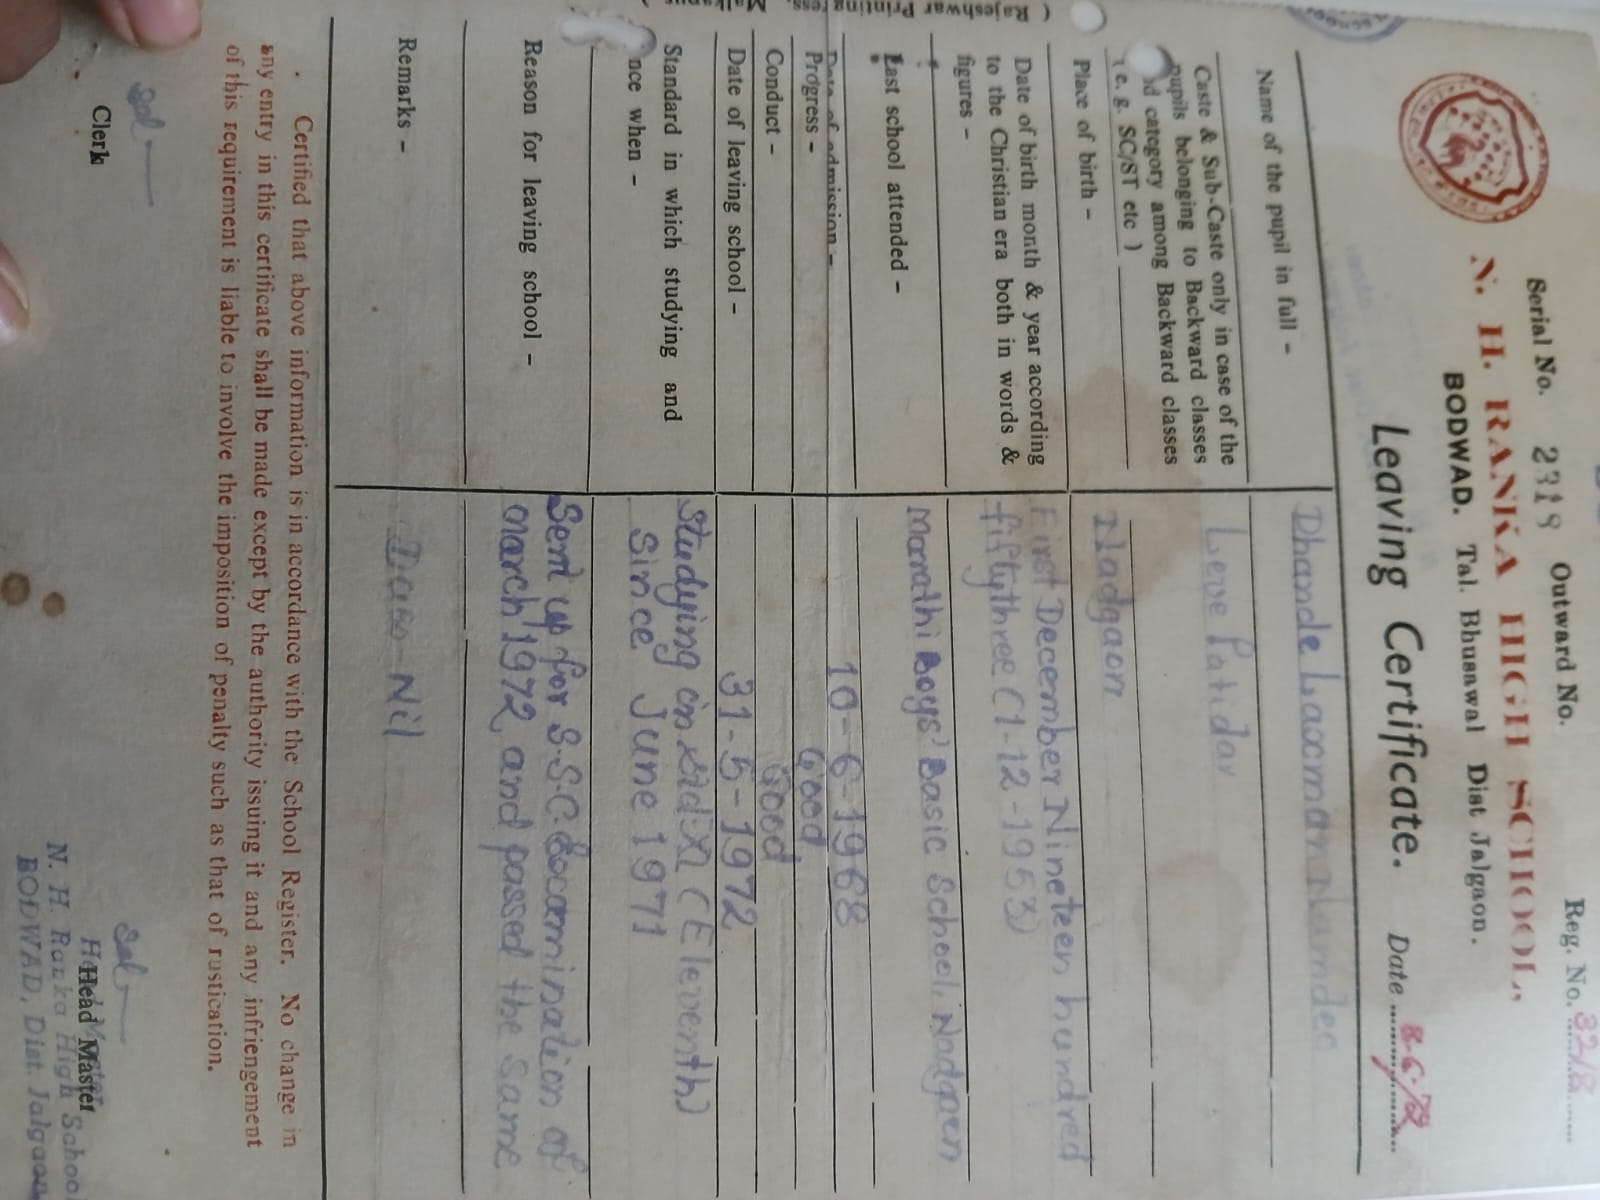 Serial No. 2319 Outward No. Reg. No. 3218
N. H. RANKA HIGH SCHOOL,
BODWAD. Tal. Bhusawal Dist Jalgaon.
Leaving Certificate. Date 8-6-72
Name of the pupil in full - Dhande Laxman Namdeo
Caste & Sub-Caste only in case of the
pupils belonging to Backward classes Leve Patidar
nd category among Backward classes
( e. g. SC/ST etc )
Place of birth - Nadgaon
Date of birth month & year according First December Nineteen hundred
to the Christian era both in words & fiftythree (1-12-1953)
figures -
Last school attended - Marathi Boys' Basic School, Nadgaon
Date of admission - 10-6-1968
Progress - Good
Conduct - Good
Date of leaving school - 31-5-1972
Standard in which studying and Studying in std XI (Eleventh)
nce when - Since June 1971
Reason for leaving school - Sent up for S.S.C. Examination of
march 1972 and passed the same
Remarks - Nil
Certified that above information is in accordance with the School Register. No change in
any entry in this certificate shall be made except by the authority issuing it and any infriengement
of this requirement is liable to involve the imposition of penalty such as that of rustication.
sd/- sd/-
Clerk Head Master
N. H. Ranka High School
BODWAD, Dist. Jalgaon
( Rajeshwar Printing